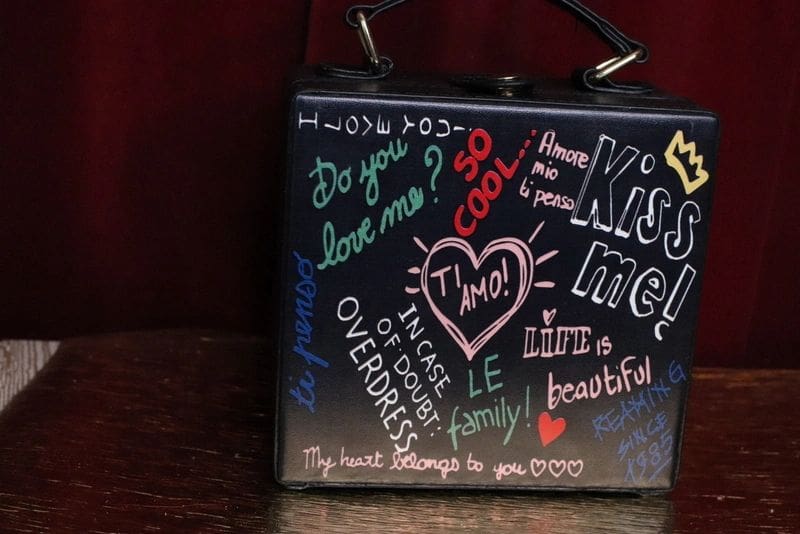 I LOVE YOU!
Do you
love me?
SO
COOL...
Amore
mio
ti penso
Kiss
me!
TI
AMO!
ti penso
IN CASE
OF DOUBT:
OVERDRESS
LiFE is
beautiful
LE
family!
REAMING
SINCE
1985
My heart belongs to you